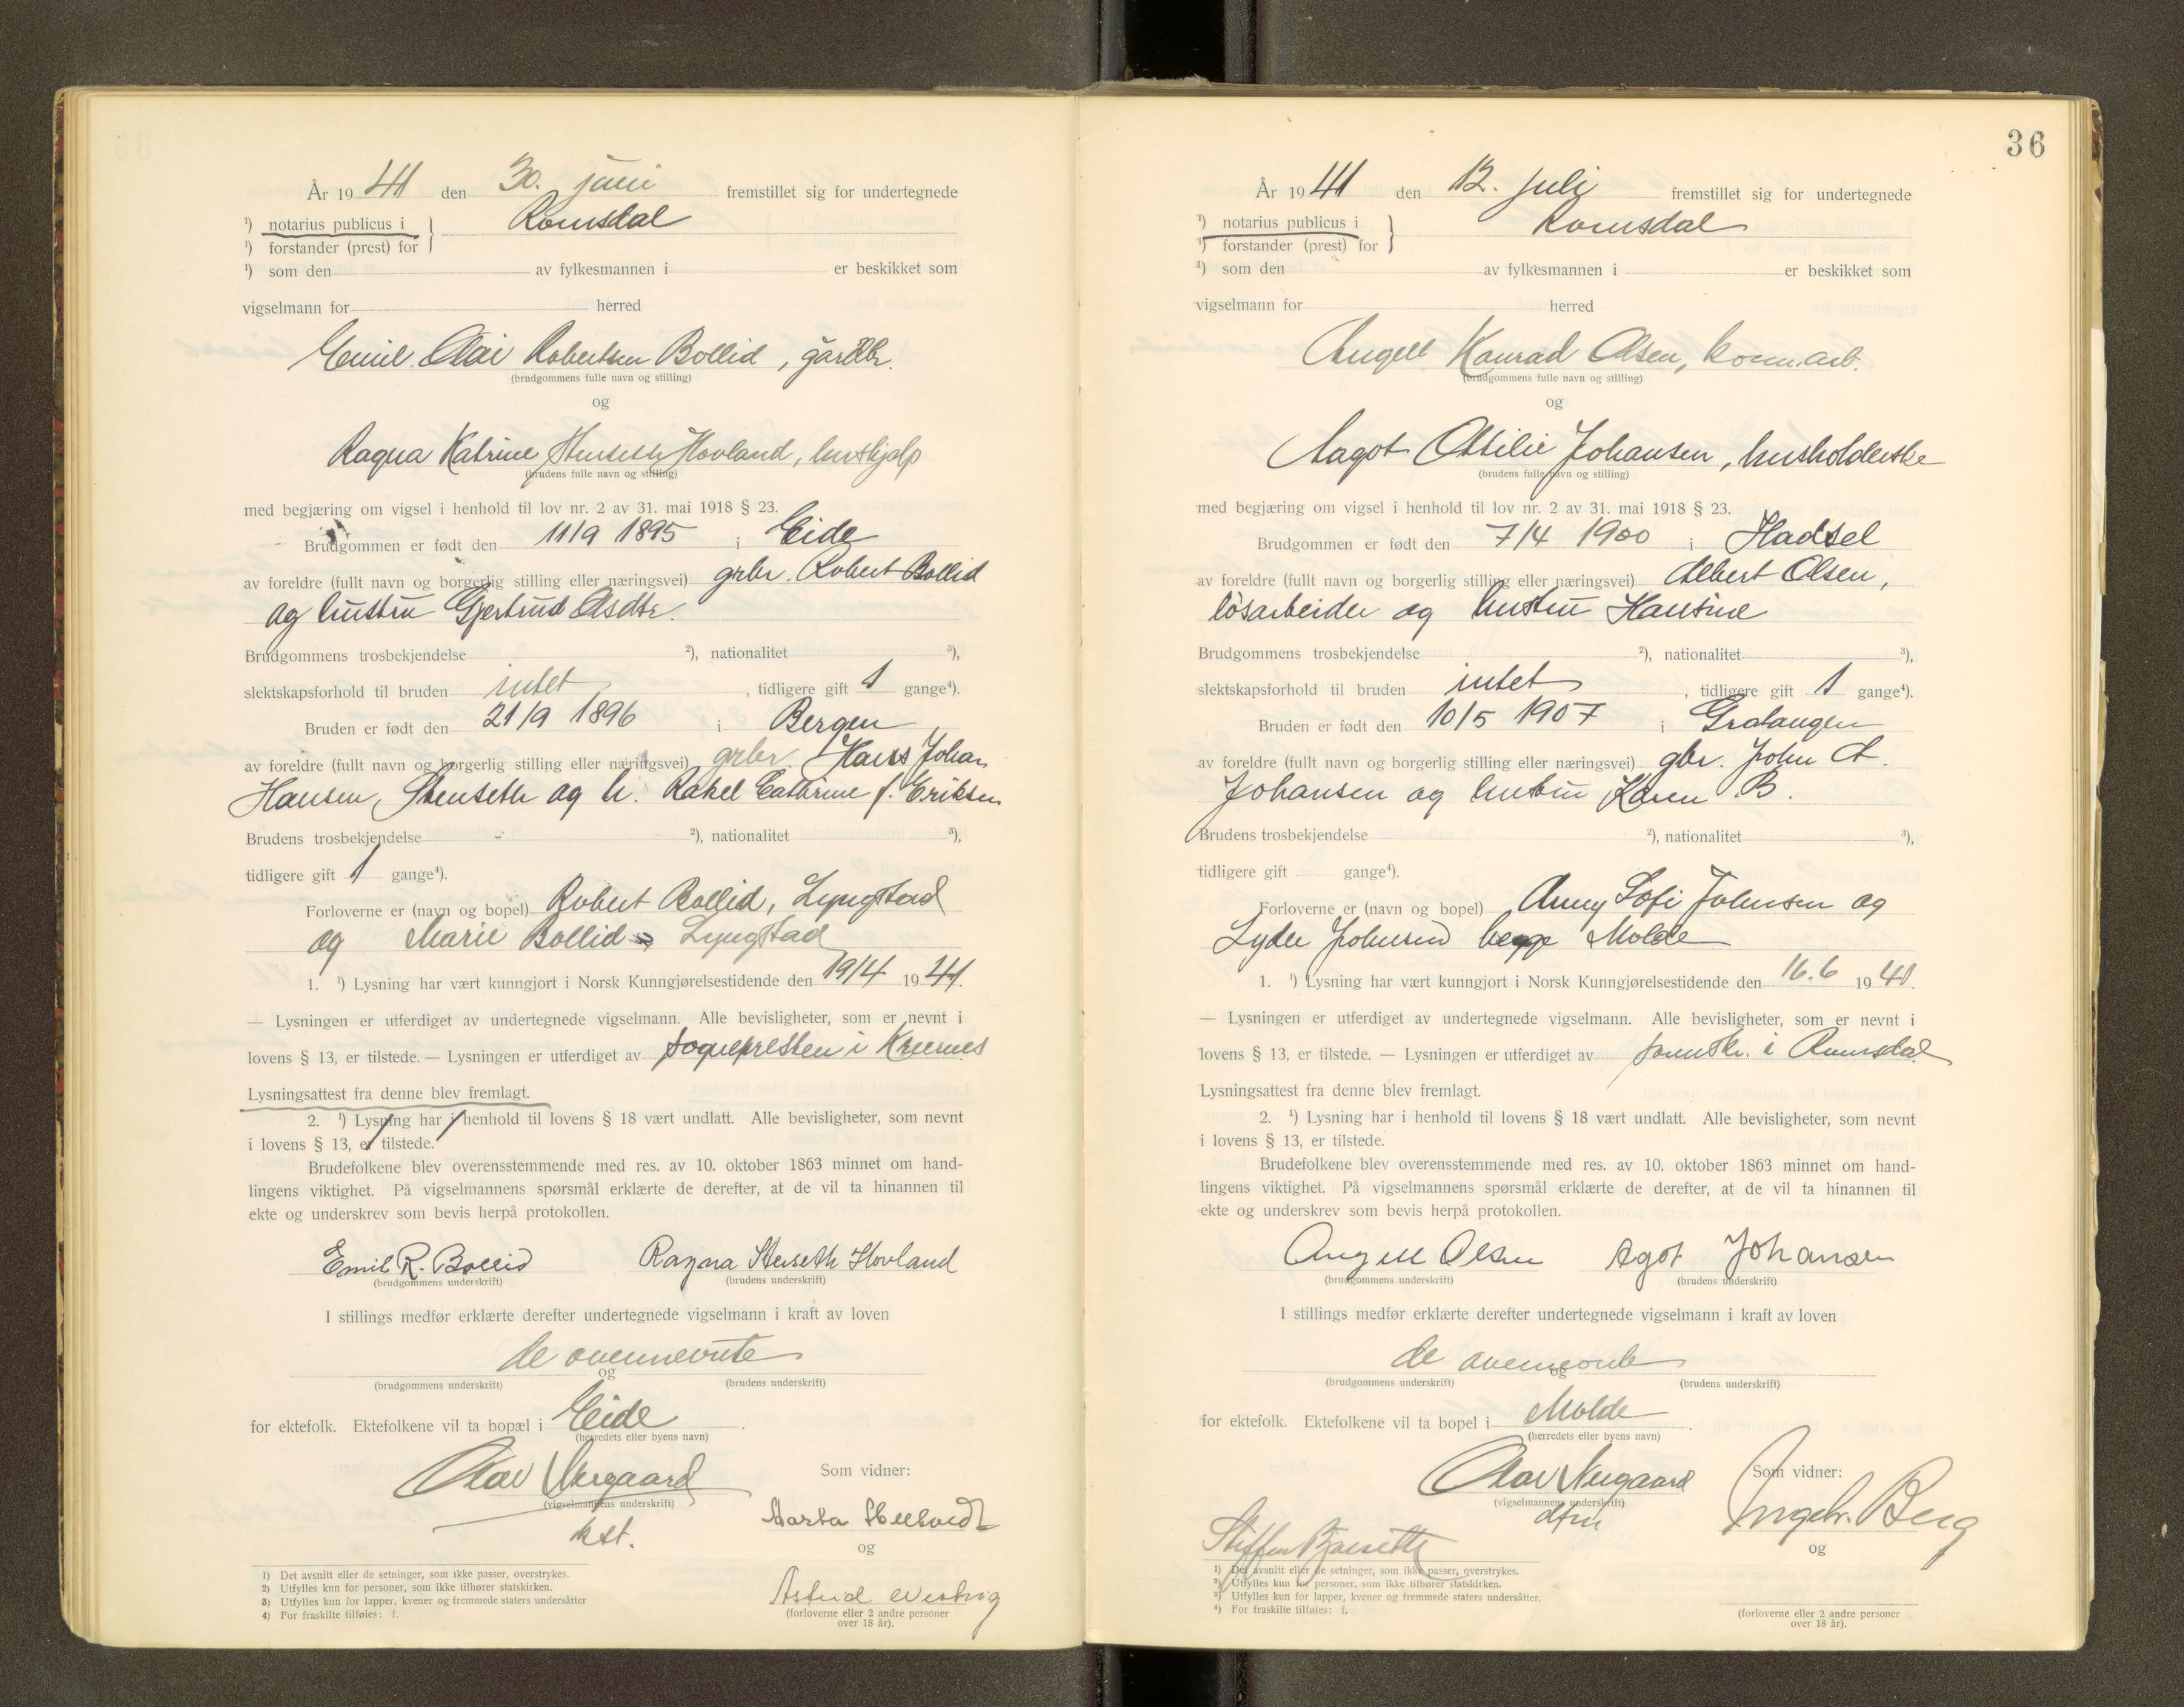 År 1941 den 30. juni fremstillet sig for undertegnede
¹) notarius publicus i
Romsdal
¹) forstander (prest) for
¹) som den av fylkesmannen i er beskikket som
vigselmann for herred
Emil Olai Robertsen Bollid, gårdbr.
(brudgommens fulle navn og stilling)
og
Ragna Katrine Stenseth Hovland, hushjelp
(brudens fulle navn og stilling)
med begjæring om vigsel i henhold til lov nr. 2 av 31. mai 1918 § 23.
Brudgommen er født den 11/9 1895 i Eide
av foreldre (fullt navn og borgerlig stilling eller næringsvei) grbr. Robert Bollid
og hustru Gjertrud Asdtr.
Brudgommens trosbekjendelse ²), nationalitet ³),
slektskapsforhold til bruden intet, tidligere gift 1 gange⁴).
Bruden er født den 21/9 1896 i Bergen
av foreldre (fullt navn og borgerlig stilling eller næringsvei) grbr. Hans Johan
Hansen Stenseth og h. Rakel Cathrine f. Eriksen
Brudens trosbekjendelse - ²), nationalitet ³),
tidligere gift 1 gange⁴).
Forloverne er (navn og bopel) Robert Bollid, Lyngstad
og Marie Bollid Lyngstad
1. ¹) Lysning har vært kunngjort i Norsk Kunngjørelsestidende den 19/4 1941.
— Lysningen er utferdiget av undertegnede vigselmann. Alle bevisligheter, som er nevnt i
lovens § 13, er tilstede. — Lysningen er utferdiget av sognepresten i
Lysningsattest fra denne blev fremlagt.
2. ¹) Lysning har i henhold til lovens § 18 vært undlatt. Alle bevisligheter, som nevnt
i lovens § 13, er tilstede.
Brudefolkene blev overensstemmende med res. av 10. oktober 1863 minnet om hand-
lingens viktighet. På vigselmannens spørsmål erklærte de derefter, at de vil ta hinannen til
ekte og underskrev som bevis herpå protokollen.
Emil R. Bollid Ragna Stenseth Hovland
(brudgommens underskrift) (brudens underskrift)
I stillings medfør erklærte derefter undertegnede vigselmann i kraft av loven
de ovennevnte
og
(brudgommens underskrift) (brudens underskrift)
for ektefolk. Ektefolkene vil ta bopæl i Eide.
(herredets eller byens navn)
Olav
Som vidner:
(vigselmannens underskrift)
kst.
Marta
og
Astrid
(forloverne eller 2 andre personer
over 18 år).
1) Det avsnitt eller de setninger, som ikke passer, overstrykes.
2) Utfylles kun for personer, som ikke tilhører statskirken.
3) Utfylles kun for lapper, kvener og fremmede staters undersåtter
4) For fraskilte tilføies: f.
36
År 1941 den 12. juli fremstillet sig for undertegnede
¹) notarius publicus i
Romsdal
¹) forstander (prest) for
¹) som den av fylkesmannen i er beskikket som
vigselmann for herred
Angell Konrad Olsen, komm.arb.
(brudgommens fulle navn og stilling)
og
Aagot Ottilie Johansen, husholderske
(brudens fulle navn og stilling)
med begjæring om vigsel i henhold til lov nr. 2 av 31. mai 1918 § 23.
Brudgommen er født den 7/4 1900 i Hadsel
av foreldre (fullt navn og borgerlig stilling eller næringsvei) Albert Olsen,
løsarbeider og hustru Hansine
Brudgommens trosbekjendelse ²), nationalitet ³),
slektskapsforhold til bruden intet, tidligere gift 1 gange⁴).
Bruden er født den 10/5 1907 i Gratangen
av foreldre (fullt navn og borgerlig stilling eller næringsvei) gbr. John A.
Johansen og hustru Karen B.
Brudens trosbekjendelse ²), nationalitet ³),
tidligere gift gange⁴).
Forloverne er (navn og bopel) Anny Sofi Johnsen og
Lyder Johnsen begge Molde
1. ¹) Lysning har vært kunngjort i Norsk Kunngjørelsestidende den 16.6 1941.
— Lysningen er utferdiget av undertegnede vigselmann. Alle bevisligheter, som er nevnt i
lovens § 13, er tilstede. — Lysningen er utferdiget av sorenskr. i Romsdal
Lysningsattest fra denne blev fremlagt.
2. ¹) Lysning har i henhold til lovens § 18 vært undlatt. Alle bevisligheter, som nevnt
i lovens § 13, er tilstede.
Brudefolkene blev overensstemmende med res. av 10. oktober 1863 minnet om hand-
lingens viktighet. På vigselmannens spørsmål erklærte de derefter, at de vil ta hinannen til
ekte og underskrev som bevis herpå protokollen.
Angell Olsen Agot Johansen
(brudgommens underskrift) (brudens underskrift)
I stillings medfør erklærte derefter undertegnede vigselmann i kraft av loven
de ovennevnte
og
(brudgommens underskrift) (brudens underskrift)
for ektefolk. Ektefolkene vil ta bopel i Molde.
(herredets eller byens navn)
Olav
Som vidner:
(vigselmannens underskrift)
dfm
Ingebr. Berg
og
(forloverne eller 2 andre personer
over 18 år).
¹) Det avsnitt eller de setninger, som ikke passer, overstrykes.
²) Utfylles kun for personer, som ikke tilhører statskirken.
³) Utfylles kun for lapper, kvener og fremmede staters undersåtter.
⁴) For fraskilte tilføies: f.